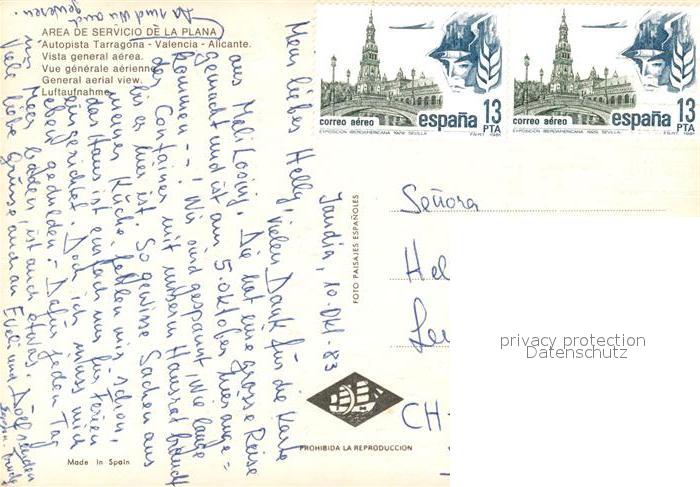 AREA DE SERVICIO DE LA PLANA
Autopista Tarragona - Valencia - Alicante.
Vista general aérea.
Vue générale aérienne
General aerial view.
Luftaufnahme
Da sind wir auch
gewesen.
Gandía, 10. Okt. 83
Mein liebes Helly, vielen Dank für die Karte
aus Mali Losinj. Die hat eine grosse Reise
gemacht und ist am 5. Oktober hier ange=
kommen --. Wir sind gespannt, wie lange
der Container mit unserem Hausrat braucht
bis er hier ist. So gewisse Sachen aus
meiner Küche fehlen mir schon,
das Haus ist einfach nur für Ferien
eingerichtet. Doch ich muss mich
eben gedulden - Dafür jeden Tag
im Meer baden, ist auch etwas.
Viele liebe Grüsse auch an Eveli und Dölf senden
correo aéreo
españa
13
PTA
EXPOSICION IBEROAMERICANA 1929. SEVILLA
correo aéreo
españa
13
PTA
EXPOSICION IBEROAMERICANA 1929. SEVILLA
Señora
Hel
CH-
FOTO PAISAJES ESPAÑOLES
PROHIBIDA LA REPRODUCCION
Made in Spain
privacy protection
Datenschutz